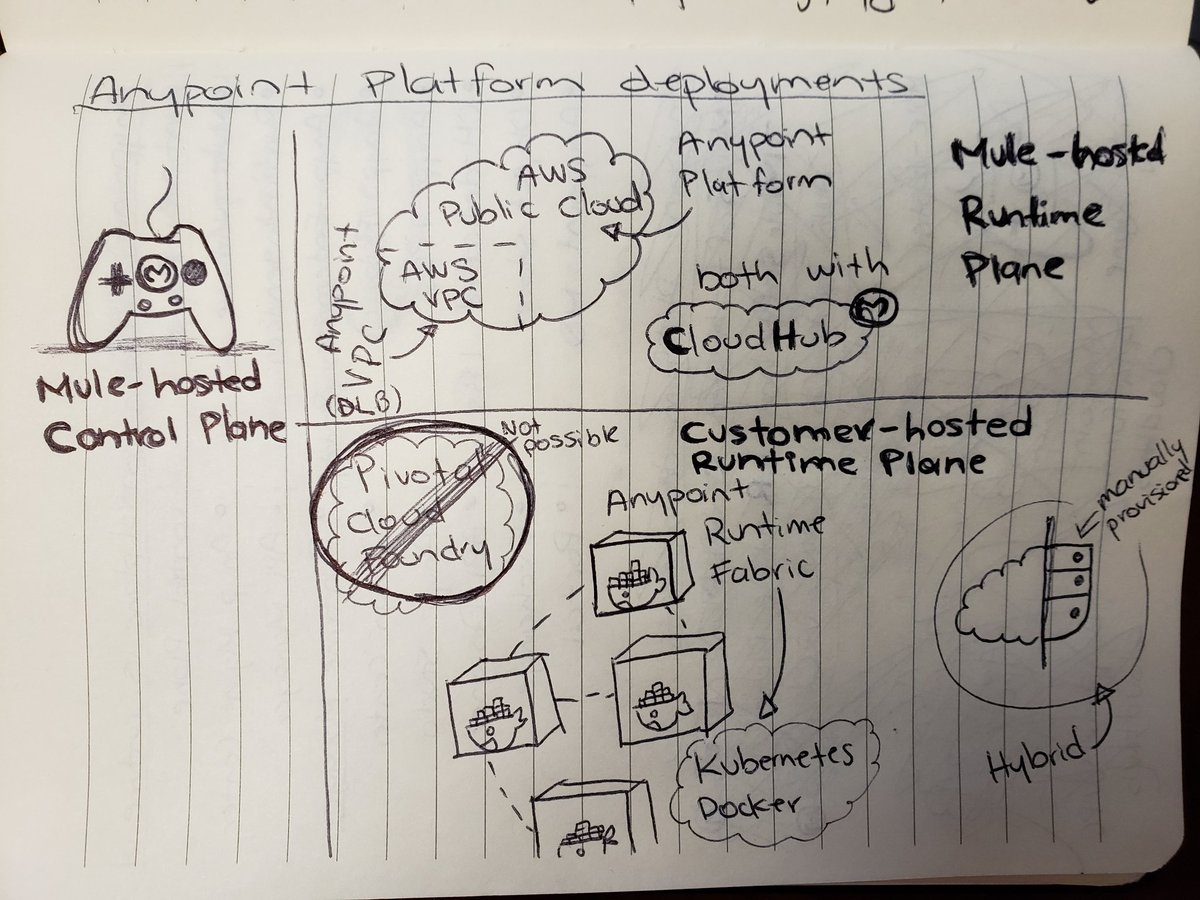 Anypoint Platform deployments
Mule-hosted
Control Plane
AWS
Public Cloud
AWS
VPC
Anypoint
VPC
(DLB)
Anypoint
Platform
both with
CloudHub
M
Mule-hostd
Runtime
Plane
Pivotal
Cloud
Foundry
Not
possible
Customer-hosted
Runtime Plane
Anypoint
Runtime
Fabric
Kubernetes
Docker
manually
provisioned
Hybrid